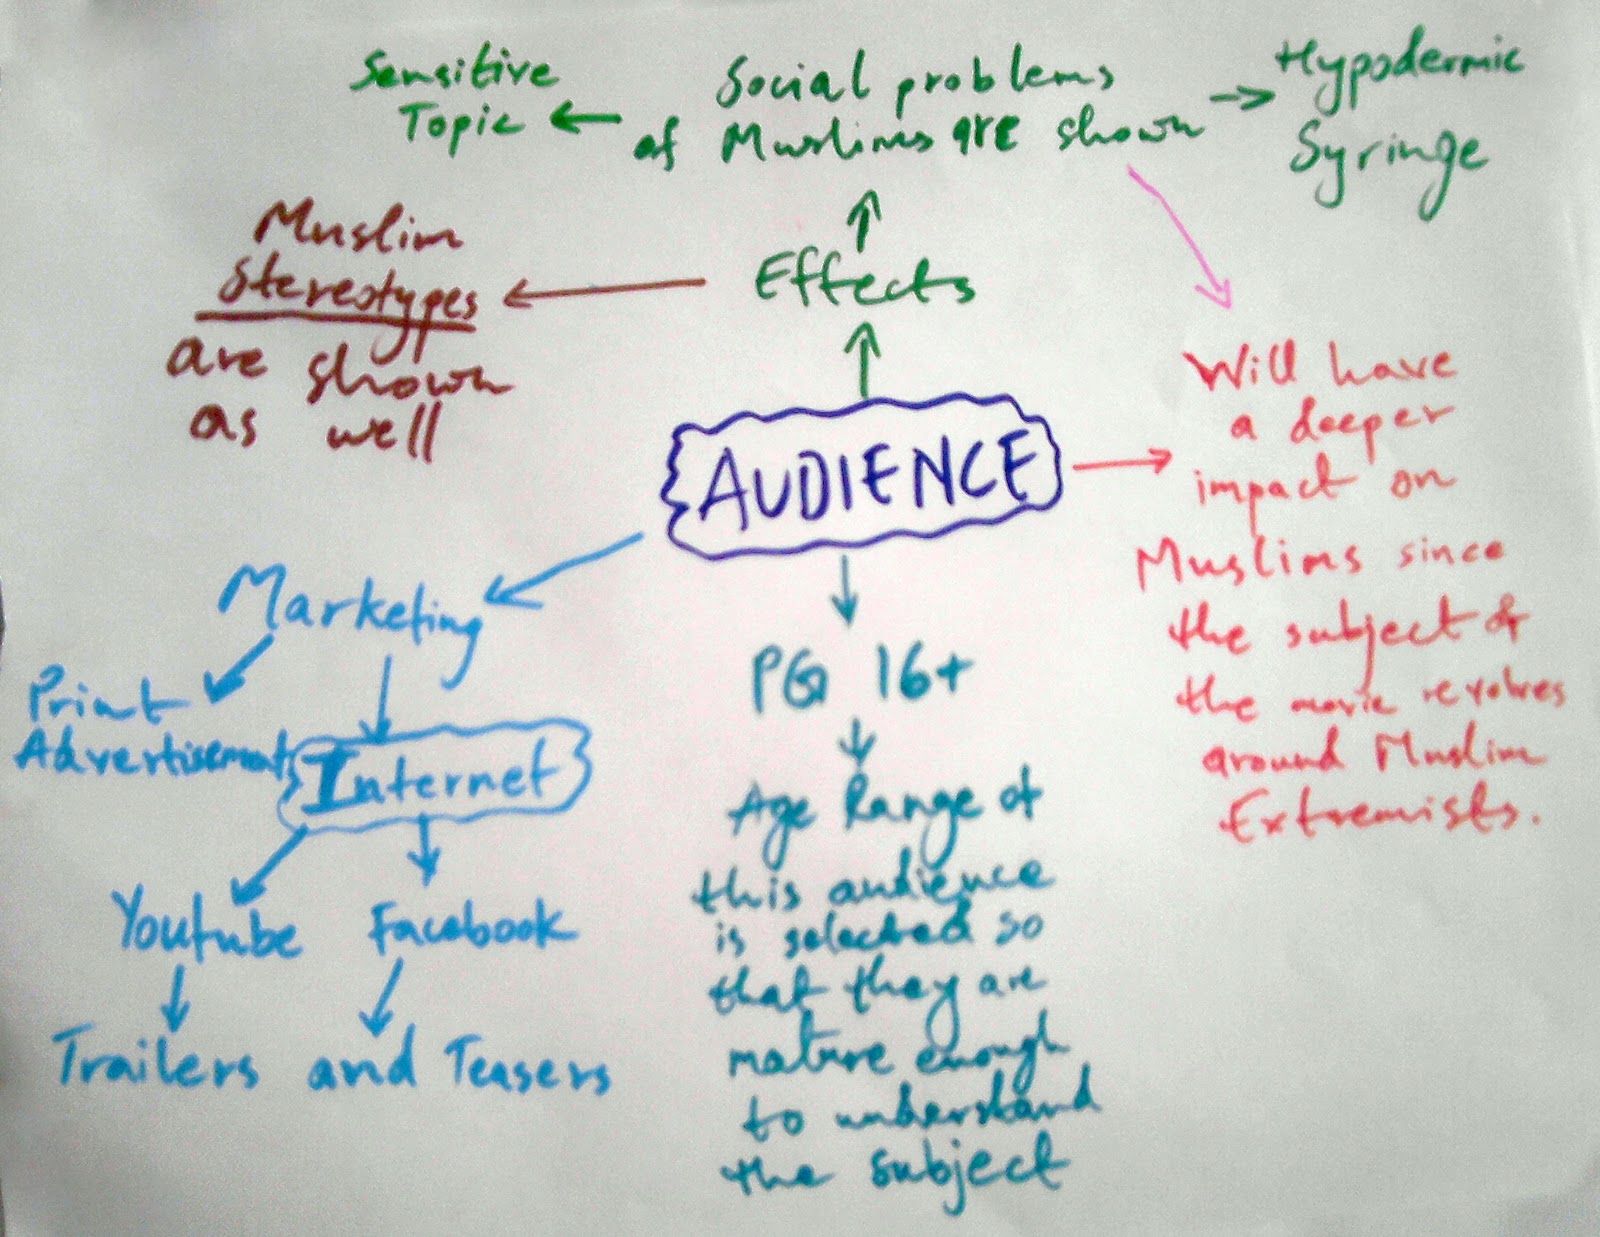 Sensitive
Topic
Social problems
of Muslims are shown
Hypodermic
Syringe
Muslim
Stereotypes
are shown
as well
Effects
AUDIENCE
Will have
a deeper
impact on
Muslims since
the subject of
the movie revolves
around Muslim
Extremists.
Marketing
Print
Advertisements
Internet
Youtube
Facebook
Trailers and Teasers
PG 16+
Age Range of
this audience
is selected so
that they are
mature enough
to understand
the subject